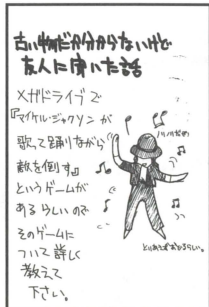 古い物だか分からないけど
友人に聞いた話
メガドライブで
『マイケル・ジャクソンが
歌って踊りながら
敵を倒す』
というゲームが
あるらしいので
そのゲームに
ついて詳しく
教えて
下さい。
とりあえずおどるらしい。